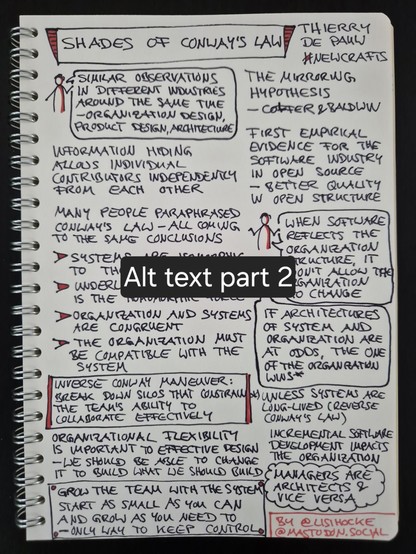 SHADES OF CONWAY'S LAW
THIERRY
DE PAUW
#NEWCRAFTS
SIMILAR OBSERVATIONS
IN DIFFERENT INDUSTRIES
AROUND THE SAME TIME
- ORGANIZATION DESIGN,
PRODUCT DESIGN, ARCHITECTURE
INFORMATION HIDING
ALLOWS INDIVIDUAL
CONTRIBUTORS INDEPENDENTLY
FROM EACH OTHER
MANY PEOPLE PARAPHRASED
CONWAY'S LAW - ALL COMING
TO THE SAME CONCLUSIONS
SYSTEMS ARE
TO
IS THE
ORGANIZATION AND SYSTEMS
ARE CONGRUENT
THE ORGANIZATION MUST
BE COMPATIBLE WITH THE
SYSTEM
INVERSE CONWAY MANEUVER:
BREAK DOWN SILOS THAT CONSTRAIN
THE TEAM'S ABILITY TO
COLLABORATE EFFECTIVELY
ORGANIZATIONAL FLEXIBILITY
IS IMPORTANT TO EFFECTIVE DESIGN
- WE SHOULD BE ABLE TO CHANGE
IT TO BUILD WHAT WE SHOULD BUILD
GROW THE TEAM WITH THE SYSTEM
START AS SMALL AS YOU CAN
AND GROW AS YOU NEED TO
- ONLY WAY TO KEEP CONTROL
THE MIRRORING
HYPOTHESIS
- COLFER & BALDWIN
FIRST EMPIRICAL
EVIDENCE FOR THE
SOFTWARE INDUSTRY
IN OPEN SOURCE
- BETTER QUALITY
IN OPEN STRUCTURE
WHEN SOFTWARE
REFLECTS THE
ORGANIZATION
STRUCTURE, IT
WON'T ALLOW THE
ORGANIZATION
TO CHANGE
IF ARCHITECTURES
OF SYSTEM AND
ORGANIZATION ARE
AT ODDS, THE ONE
OF THE ORGANIZATION
WINS*
*) UNLESS SYSTEMS ARE
LONG-LIVED (REVERSE
CONWAY'S LAW)
INCREMENTAL SOFTWARE
DEVELOPMENT IMPACTS
THE ORGANIZATION
MANAGERS ARE
ARCHITECTS &
VICE VERSA
BY @LISIHOCKE
@MASTODON.SOCIAL
Alt text part 2